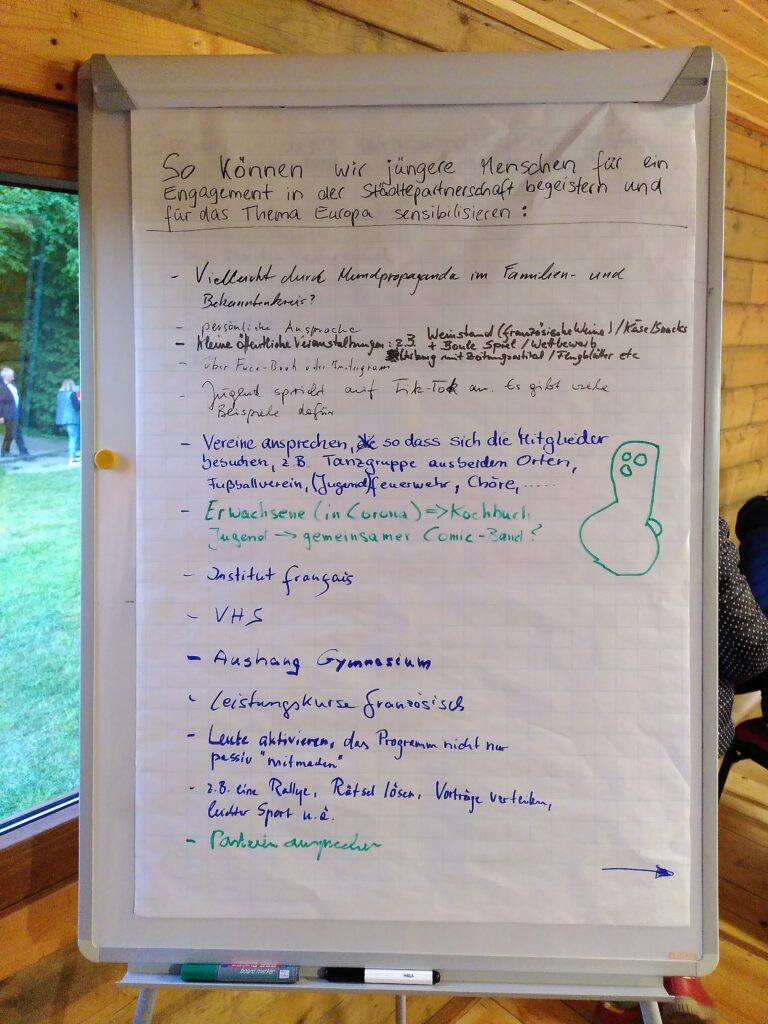 So können wir jüngere Menschen für ein
Engagement in der Städtepartnerschaft begeistern und
für das Thema Europa sensibilisieren:
- Vielleicht durch Mundpropaganda im Familien- und
Bekanntenkreis?
- persönliche Ansprache
- Kleine öffentliche Veranstaltungen: z.B. Weinstand (französische Weine) / Käse/Snacks
+ Boule Spiel / Wettbewerb
Werbung mit Zeitungsartikel / Flugblätter etc
- über Face-Book oder Instagram
- Jugend spricht auf Tik-Tok an. Es gibt viele
Beispiele dafür
- Vereine ansprechen, so dass sich die Mitglieder
besuchen, z.B. Tanzgruppe aus beiden Orten,
Fußballverein, (Jugend)feuerwehr, Chöre, .....
- Erwachsene (in Corona) => Kochbuch
Jugend -> gemeinsamer Comic-Band?
- Institut français
- VHS
- Aushang Gymnasium
- Leistungskurse französisch
- Leute aktivieren, das Programm nicht nur
passiv "mitmachen"
- z.B. eine Rallye, Rätsel lösen, Vorträge verteilen,
leichter Sport u.ä.
- Parteien ansprechen
board marker